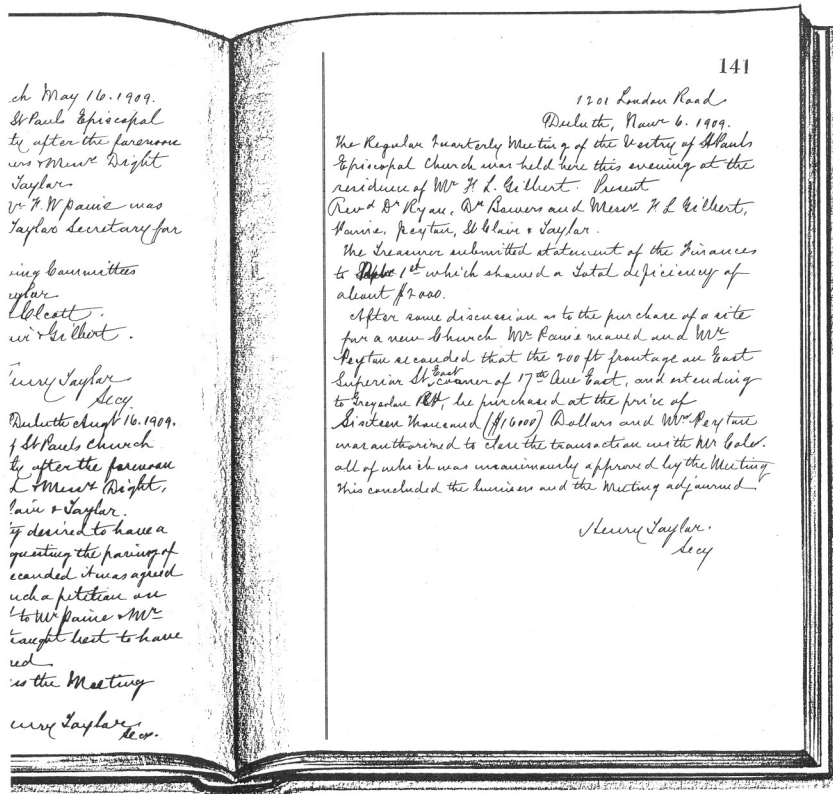 ch May 16. 1909.
St Pauls Episcopal
ty after the forenoon
ers & Messrs Dight
Taylor
F. W Paine was
Taylor Secretary for
ing Committees
aylor
Olcott.
air & Gilbert.
enry Taylor
Secy
Duluth Augt 16. 1909.
f St Pauls Church
ty after the forenoon
& Messrs Dight,
lair & Taylor.
desired to have a
questing the paving of
econded it was agreed
uch a petition on
to Mr Paine & Mr
hought best to have
red
ss the Meeting
enry Taylor
Secy.
141
1201 London Road
Duluth, Novr 6. 1909.
The Regular Quarterly Meeting of the Vestry of St Pauls
Episcopal Church was held here this evening at the
residence of Mr F L. Gilbert. Present
Revd Dr Ryan, Dr Bowers and Messrs F L Gilbert,
Paine, Peyton, St Clair & Taylor.
The Treasurer submitted statement of the Finances
to 1st which showed a Total deficiency of
about $2000.
After some discussion as to the purchase of a site
for a new Church Mr Paine moved and Mr
Peyton seconded that the 200 ft frontage on East
Superior St, East corner of 17th Ave East, and extending
to Greysolon Rd, be purchased at the price of
Sixteen Thousand ($16000) Dollars and Mr Peyton
was authorized to close the transaction with Mr Coles.
all of which was unanimously approved by the Meeting
This concluded the business and the Meeting adjourned.
Henry Taylor.
Secy